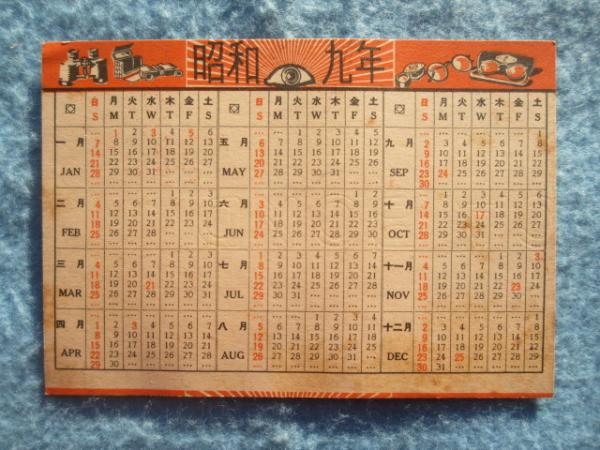 昭和 九年
日 月 火 水 木 金 土
S M T W T F S
一月 JAN
1 2 3 4 5 6
7 8 9 10 11 12 13
14 15 16 17 18 19 20
21 22 23 24 25 26 27
28 29 30 31
二月 FEB
1 2 3
4 5 6 7 8 9 10
11 12 13 14 15 16 17
18 19 20 21 22 23 24
25 26 27 28
三月 MAR
1 2 3
4 5 6 7 8 9 10
11 12 13 14 15 16 17
18 19 20 21 22 23 24
25 26 27 28 29 30 31
四月 APR
1 2 3 4 5 6 7
8 9 10 11 12 13 14
15 16 17 18 19 20 21
22 23 24 25 26 27 28
29 30
日 月 火 水 木 金 土
S M T W T F S
五月 MAY
1 2 3 4 5
6 7 8 9 10 11 12
13 14 15 16 17 18 19
20 21 22 23 24 25 26
27 28 29 30 31
六月 JUN
1 2
3 4 5 6 7 8 9
10 11 12 13 14 15 16
17 18 19 20 21 22 23
24 25 26 27 28 29 30
七月 JUL
1 2 3 4 5 6 7
8 9 10 11 12 13 14
15 16 17 18 19 20 21
22 23 24 25 26 27 28
29 30 31
八月 AUG
1 2 3 4
5 6 7 8 9 10 11
12 13 14 15 16 17 18
19 20 21 22 23 24 25
26 27 28 29 30 31
日 月 火 水 木 金 土
S M T W T F S
九月 SEP
1
2 3 4 5 6 7 8
9 10 11 12 13 14 15
16 17 18 19 20 21 22
23 24 25 26 27 28 29
30
十月 OCT
1 2 3 4 5 6
7 8 9 10 11 12 13
14 15 16 17 18 19 20
21 22 23 24 25 26 27
28 29 30 31
十一月 NOV
1 2 3
4 5 6 7 8 9 10
11 12 13 14 15 16 17
18 19 20 21 22 23 24
25 26 27 28 29 30
十二月 DEC
1
2 3 4 5 6 7 8
9 10 11 12 13 14 15
16 17 18 19 20 21 22
23 24 25 26 27 28 29
30 31